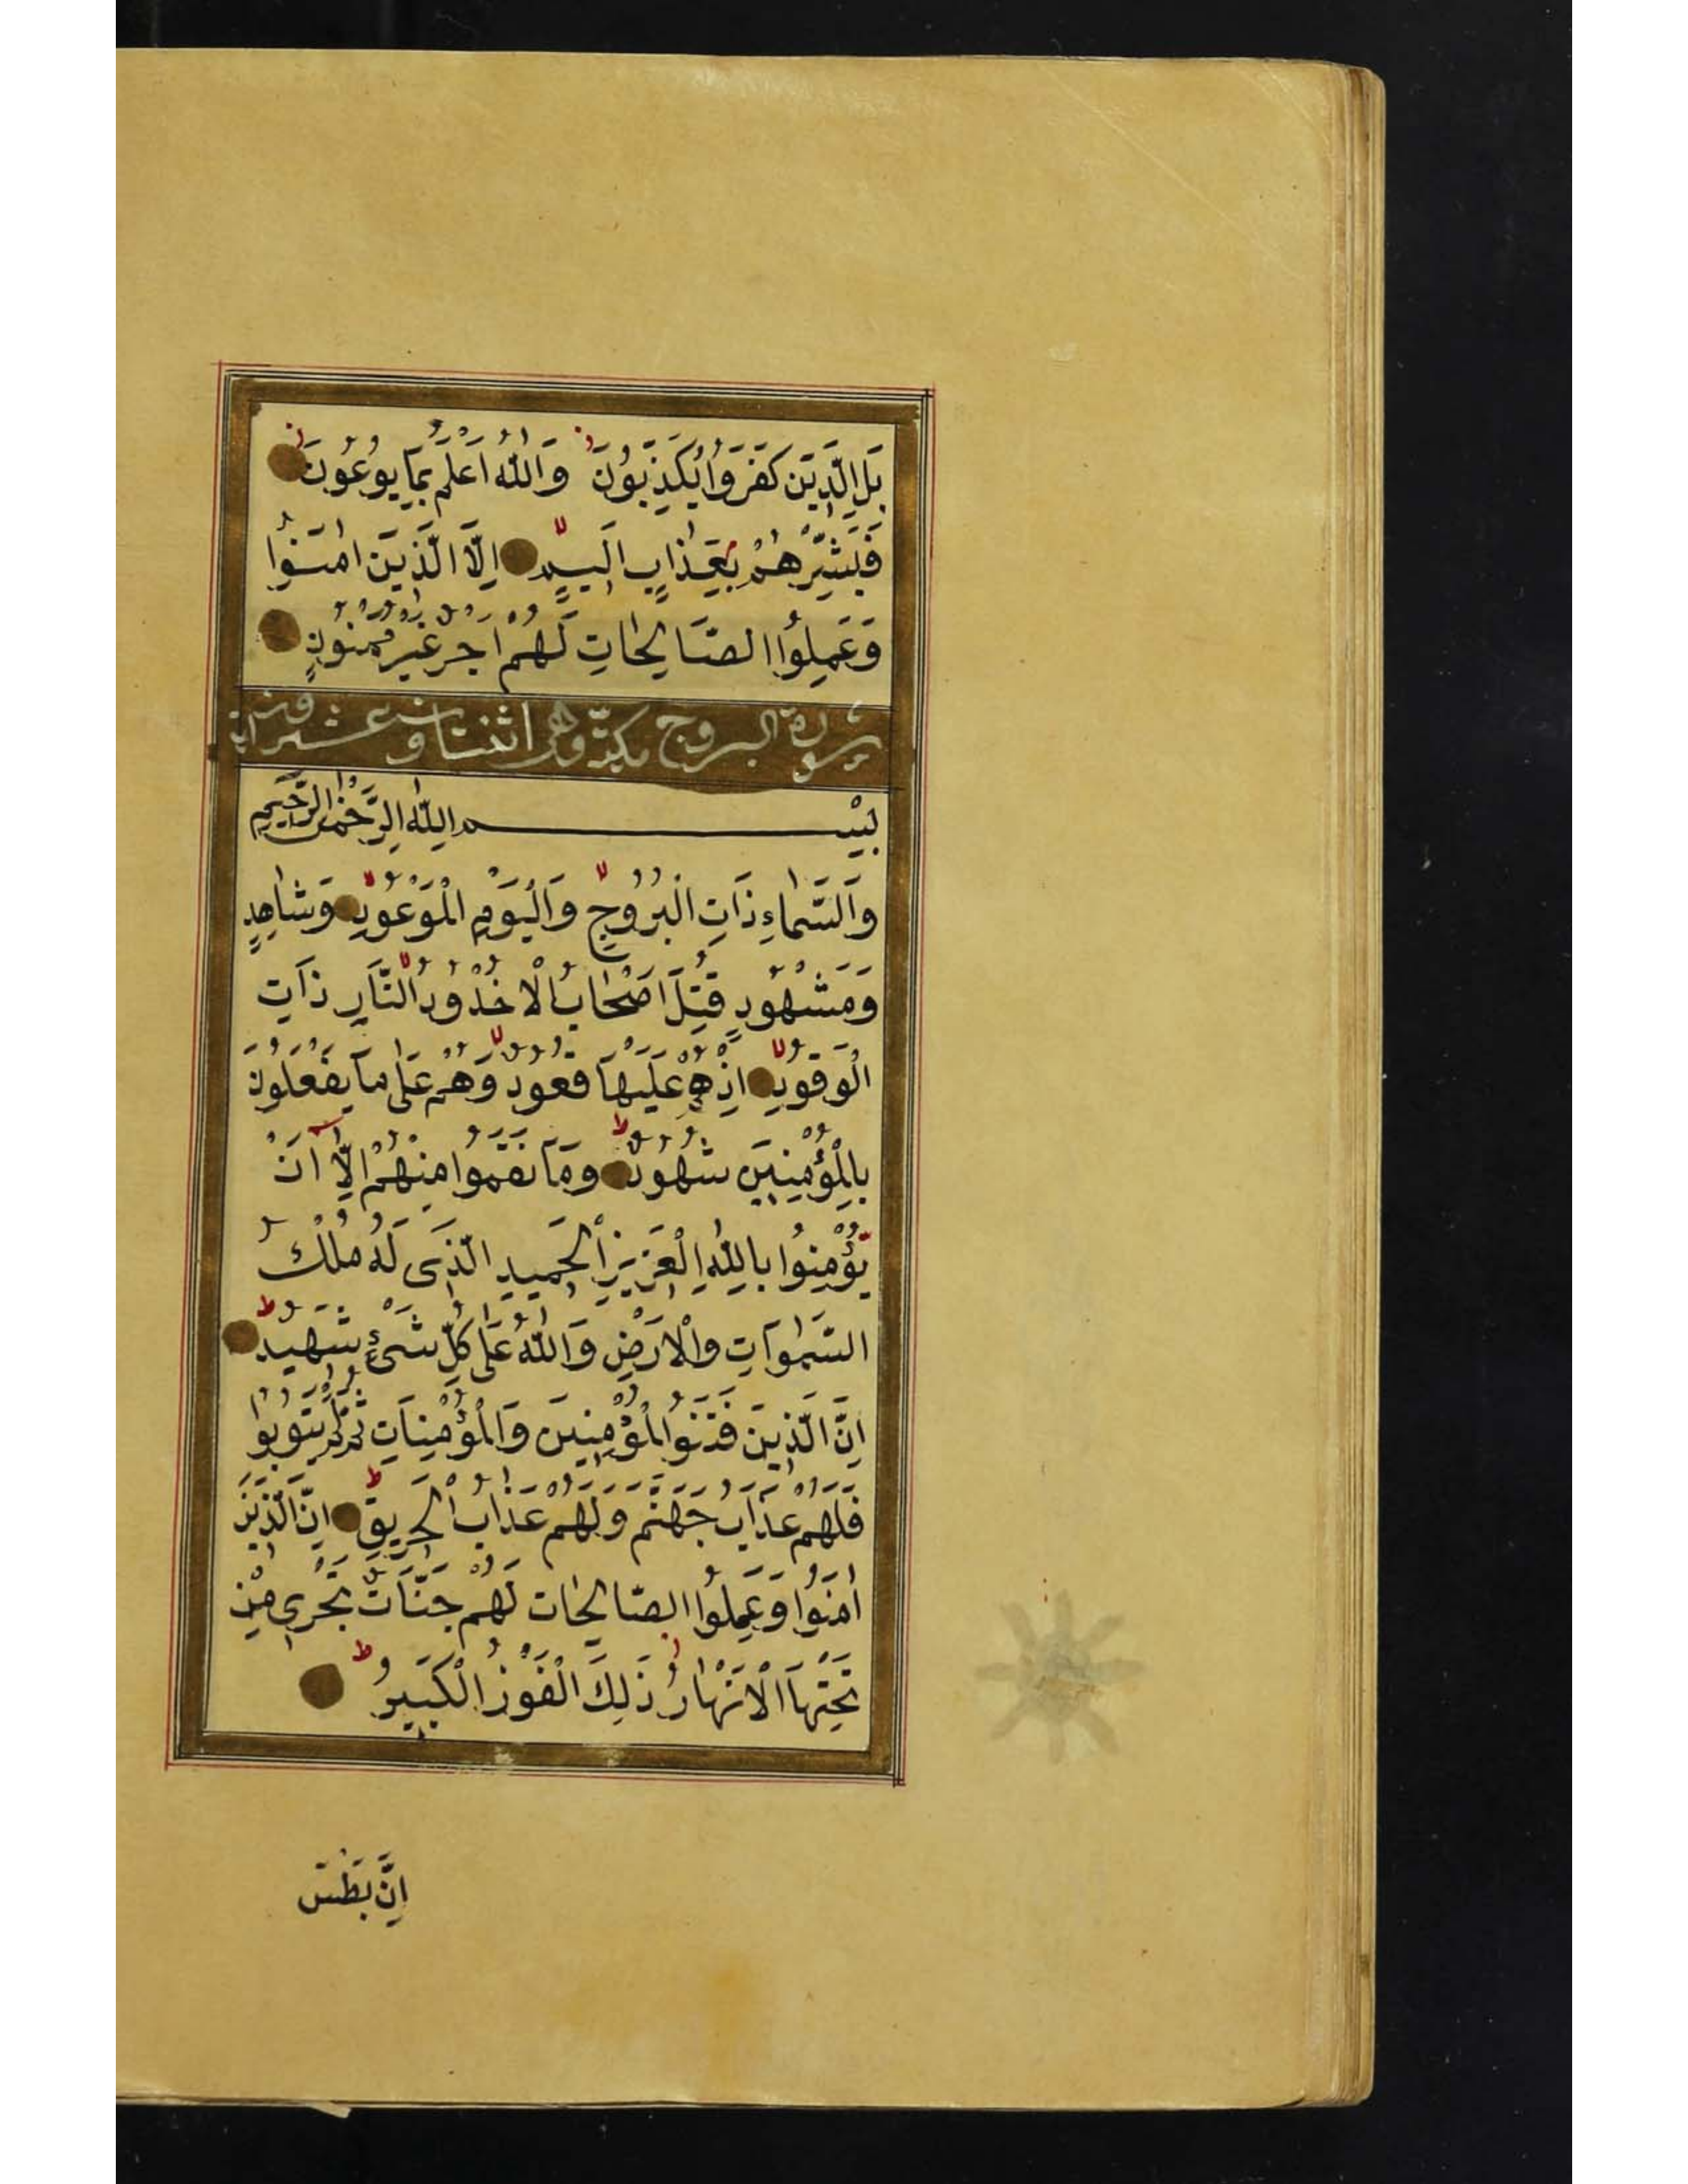 بَلِ الَّذِينَ كَفَرُوا يُكَذِّبُونَ وَاللّٰهُ اَعْلَمُ بِمَا يُوعُونَ
فَبَشِّرْهُمْ بِعَذٰابٍ اَلِيمٍ اِلَّا الَّذِينَ اٰمَنُوا
وَعَمِلُوا الصَّالِحٰاتِ لَهُمْ اَجْرٌ غَيْرُ مَمْنُونٍ
سورة البروج مكيّة وهى اثنتان وعشرون اية
بِسْمِ اللّٰهِ الرَّحْمٰنِ الرَّحِيمِ
وَالسَّمٰاءِ ذَاتِ الْبُرُوجِ وَالْيَوْمِ الْمَوْعُودِ وَشٰاهِدٍ
وَمَشْهُودٍ قُتِلَ اَصْحٰابُ الْاُخْدُودِ النَّارِ ذَاتِ
الْوَقُودِ اِذْ هُمْ عَلَيْهَا قُعُودٌ وَهُمْ عَلٰى مَا يَفْعَلُونَ
بِالْمُؤْمِنِينَ شُهُودٌ وَمَا نَقَمُوا مِنْهُمْ اِلَّا اَنْ
يُؤْمِنُوا بِاللّٰهِ الْعَزِيزِ الْحَمِيدِ الَّذِى لَهُ مُلْكُ
السَّمٰوَاتِ وَالْاَرْضِ وَاللّٰهُ عَلٰى كُلِّ شَىْءٍ شَهِيدٌ
اِنَّ الَّذِينَ فَتَنُوا الْمُؤْمِنِينَ وَالْمُؤْمِنَاتِ ثُمَّ لَمْ يَتُوبُوا
فَلَهُمْ عَذَابُ جَهَنَّمَ وَلَهُمْ عَذٰابُ الْحَرِيقِ اِنَّ الَّذِينَ
اٰمَنُوا وَعَمِلُوا الصَّالِحٰاتِ لَهُمْ جَنَّاتٌ تَجْرِى مِنْ
تَحْتِهَا الْاَنْهٰارُ ذَلِكَ الْفَوْزُ الْكَبِيرُ
اِنَّ بَطْشَ